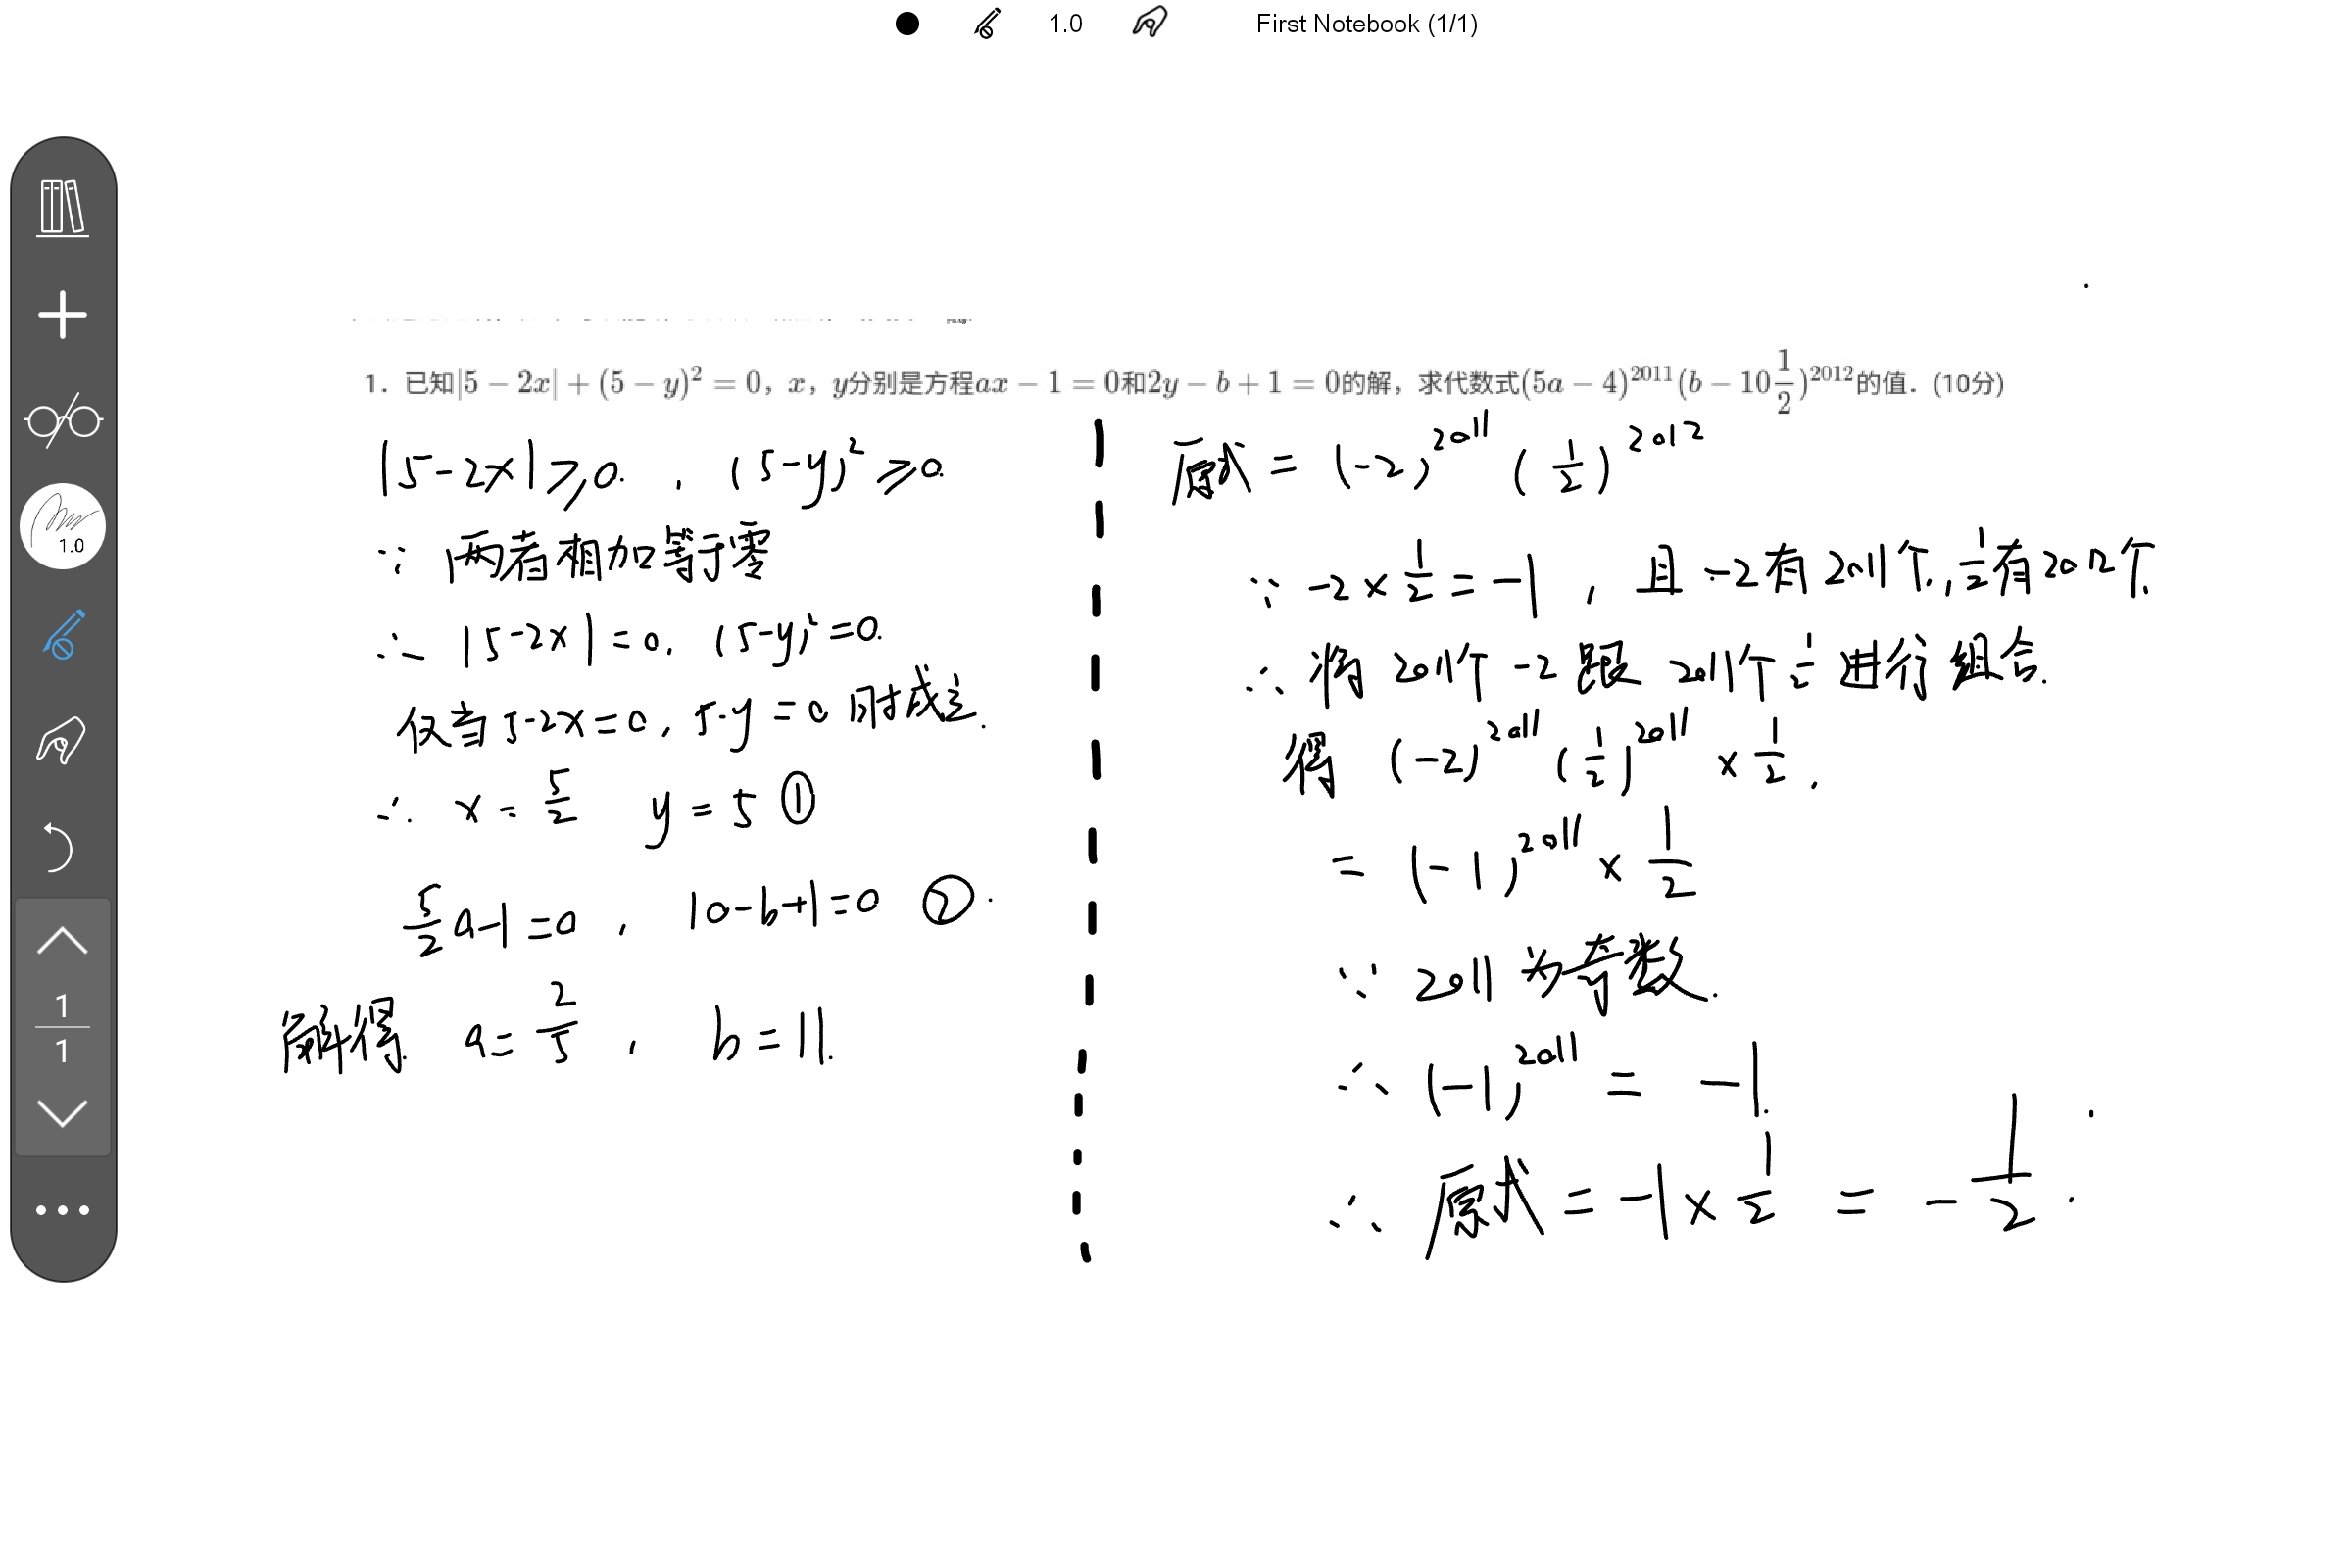 1.0 First Notebook (1/1)
1.0
1
1
1. 已知|5 − 2x| + (5 − y)² = 0，x，y分别是方程ax − 1 = 0和2y − b + 1 = 0的解，求代数式(5a − 4)²⁰¹¹(b − 10½)²⁰¹²的值．(10分)
|5-2x|≥0. , (5-y)²≥0.
∵ 两者相加等于零
∴ |5-2x|=0, (5-y)²=0.
仅当5-2x=0, 5-y=0时成立.
∴ x=5/2 y=5 ①
5/2a-1=0 , 10-b+1=0 ②.
解得 a=2/5 , b=11.
原式=(-2)²⁰¹¹(1/2)²⁰¹²
∵ -2×1/2=-1 , 且-2有2011个, 1/2有2012个.
∴ 将2011个-2跟2011个1/2进行组合.
得 (-2)²⁰¹¹(1/2)²⁰¹¹×1/2.
=(-1)²⁰¹¹×1/2
∵ 2011为奇数.
∴ (-1)²⁰¹¹ = -1.
∴ 原式=-1×1/2 = -1/2.